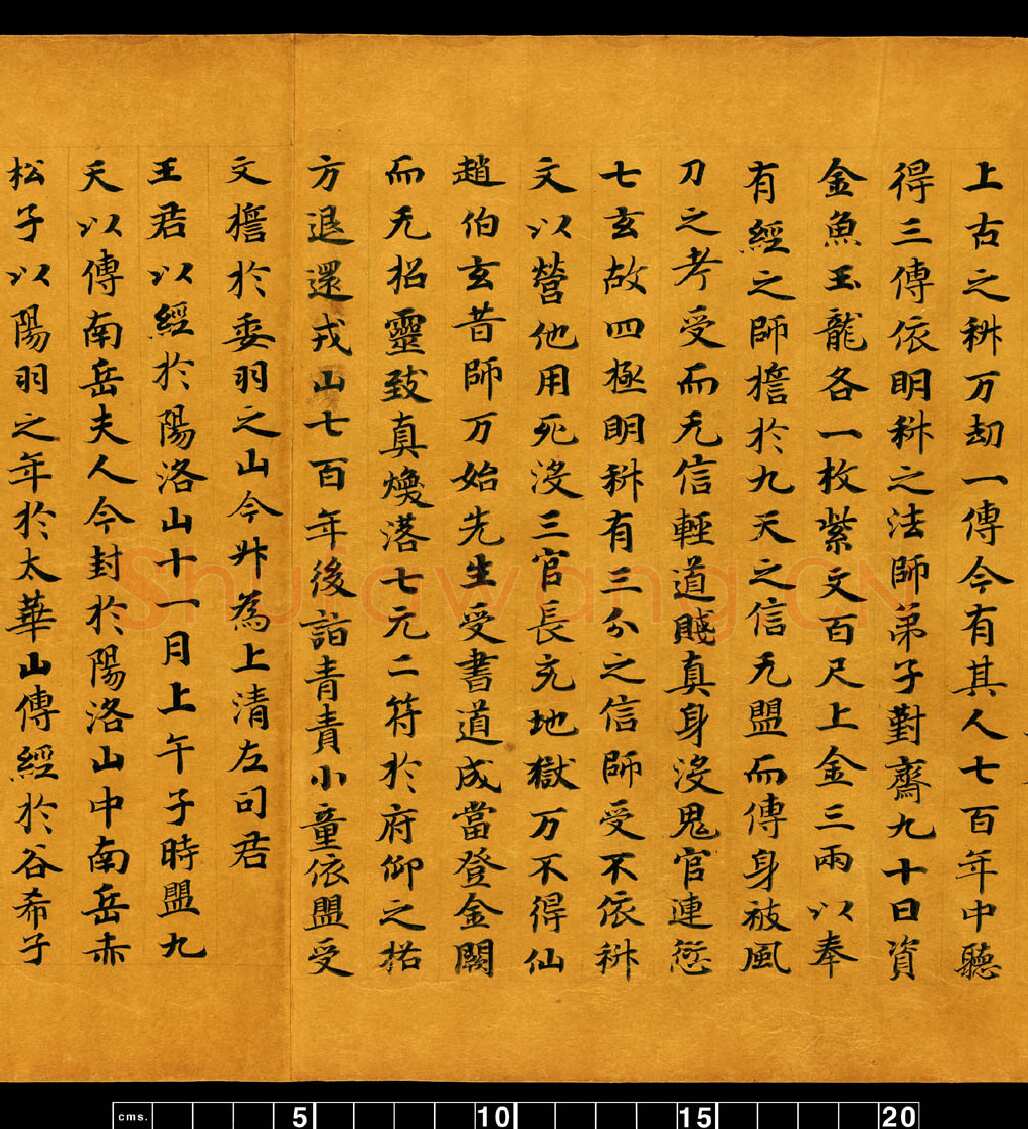 上古之科万劫一傳今有其人七百年中聽
得三傳依明科之法師弟子對齋九十日資
金魚玉龍各一枚紫文百尺上金三兩以奉
有經之師檐於九天之信无盟而傳身被風
刀之考受而无信輕道賤真身没鬼官連愆
七玄故四極明科有三分之信師受不依科
文以營他用死没三官長充地獄万不得仙
趙伯玄昔師万始先生受書道成當登金闕
而无招靈致真煥落七元二符於府仰之格
方退還戎山七百年後詣青責小童依盟受
文檐於委羽之山今升為上清左司君
王君以經於陽洛山十一月上午子時盟九
天以傳南岳夫人今封於陽洛山中南岳赤
松子以陽羽之年於太華山傳經於谷希子
Shufawang.CN
cms. 5 10 15 20